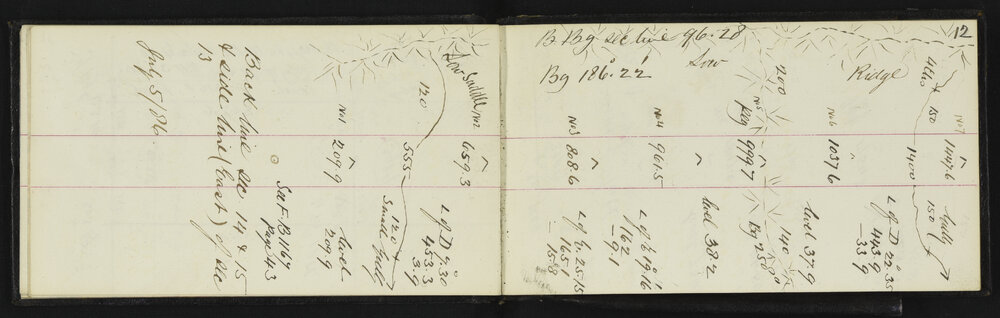 12
B Bg sec line 96.28
Bg 186°.22'
Low
Ridge
July 5/86
Back line sec 14 & 15
& side line (East) of sec
13
See F.B 1167
Page 43
No 1
209.9
level
209.9
Low Saddle
No 2
659.3
120
555
120
Small Gully
L of D 9.30
453.3
3.9
No 3
808.6
L of E 25.15
165.1
15.8
No 4
961.5
L of E 19.16
162
- 9.1
level 38.2
No 5
Peg
999.7
200
140
Bg 258°
No 6
1037.6
level 37.9
No 7
1447.6
150
1400
Gully
150
L of D 22°.35
443.9
- 33.9